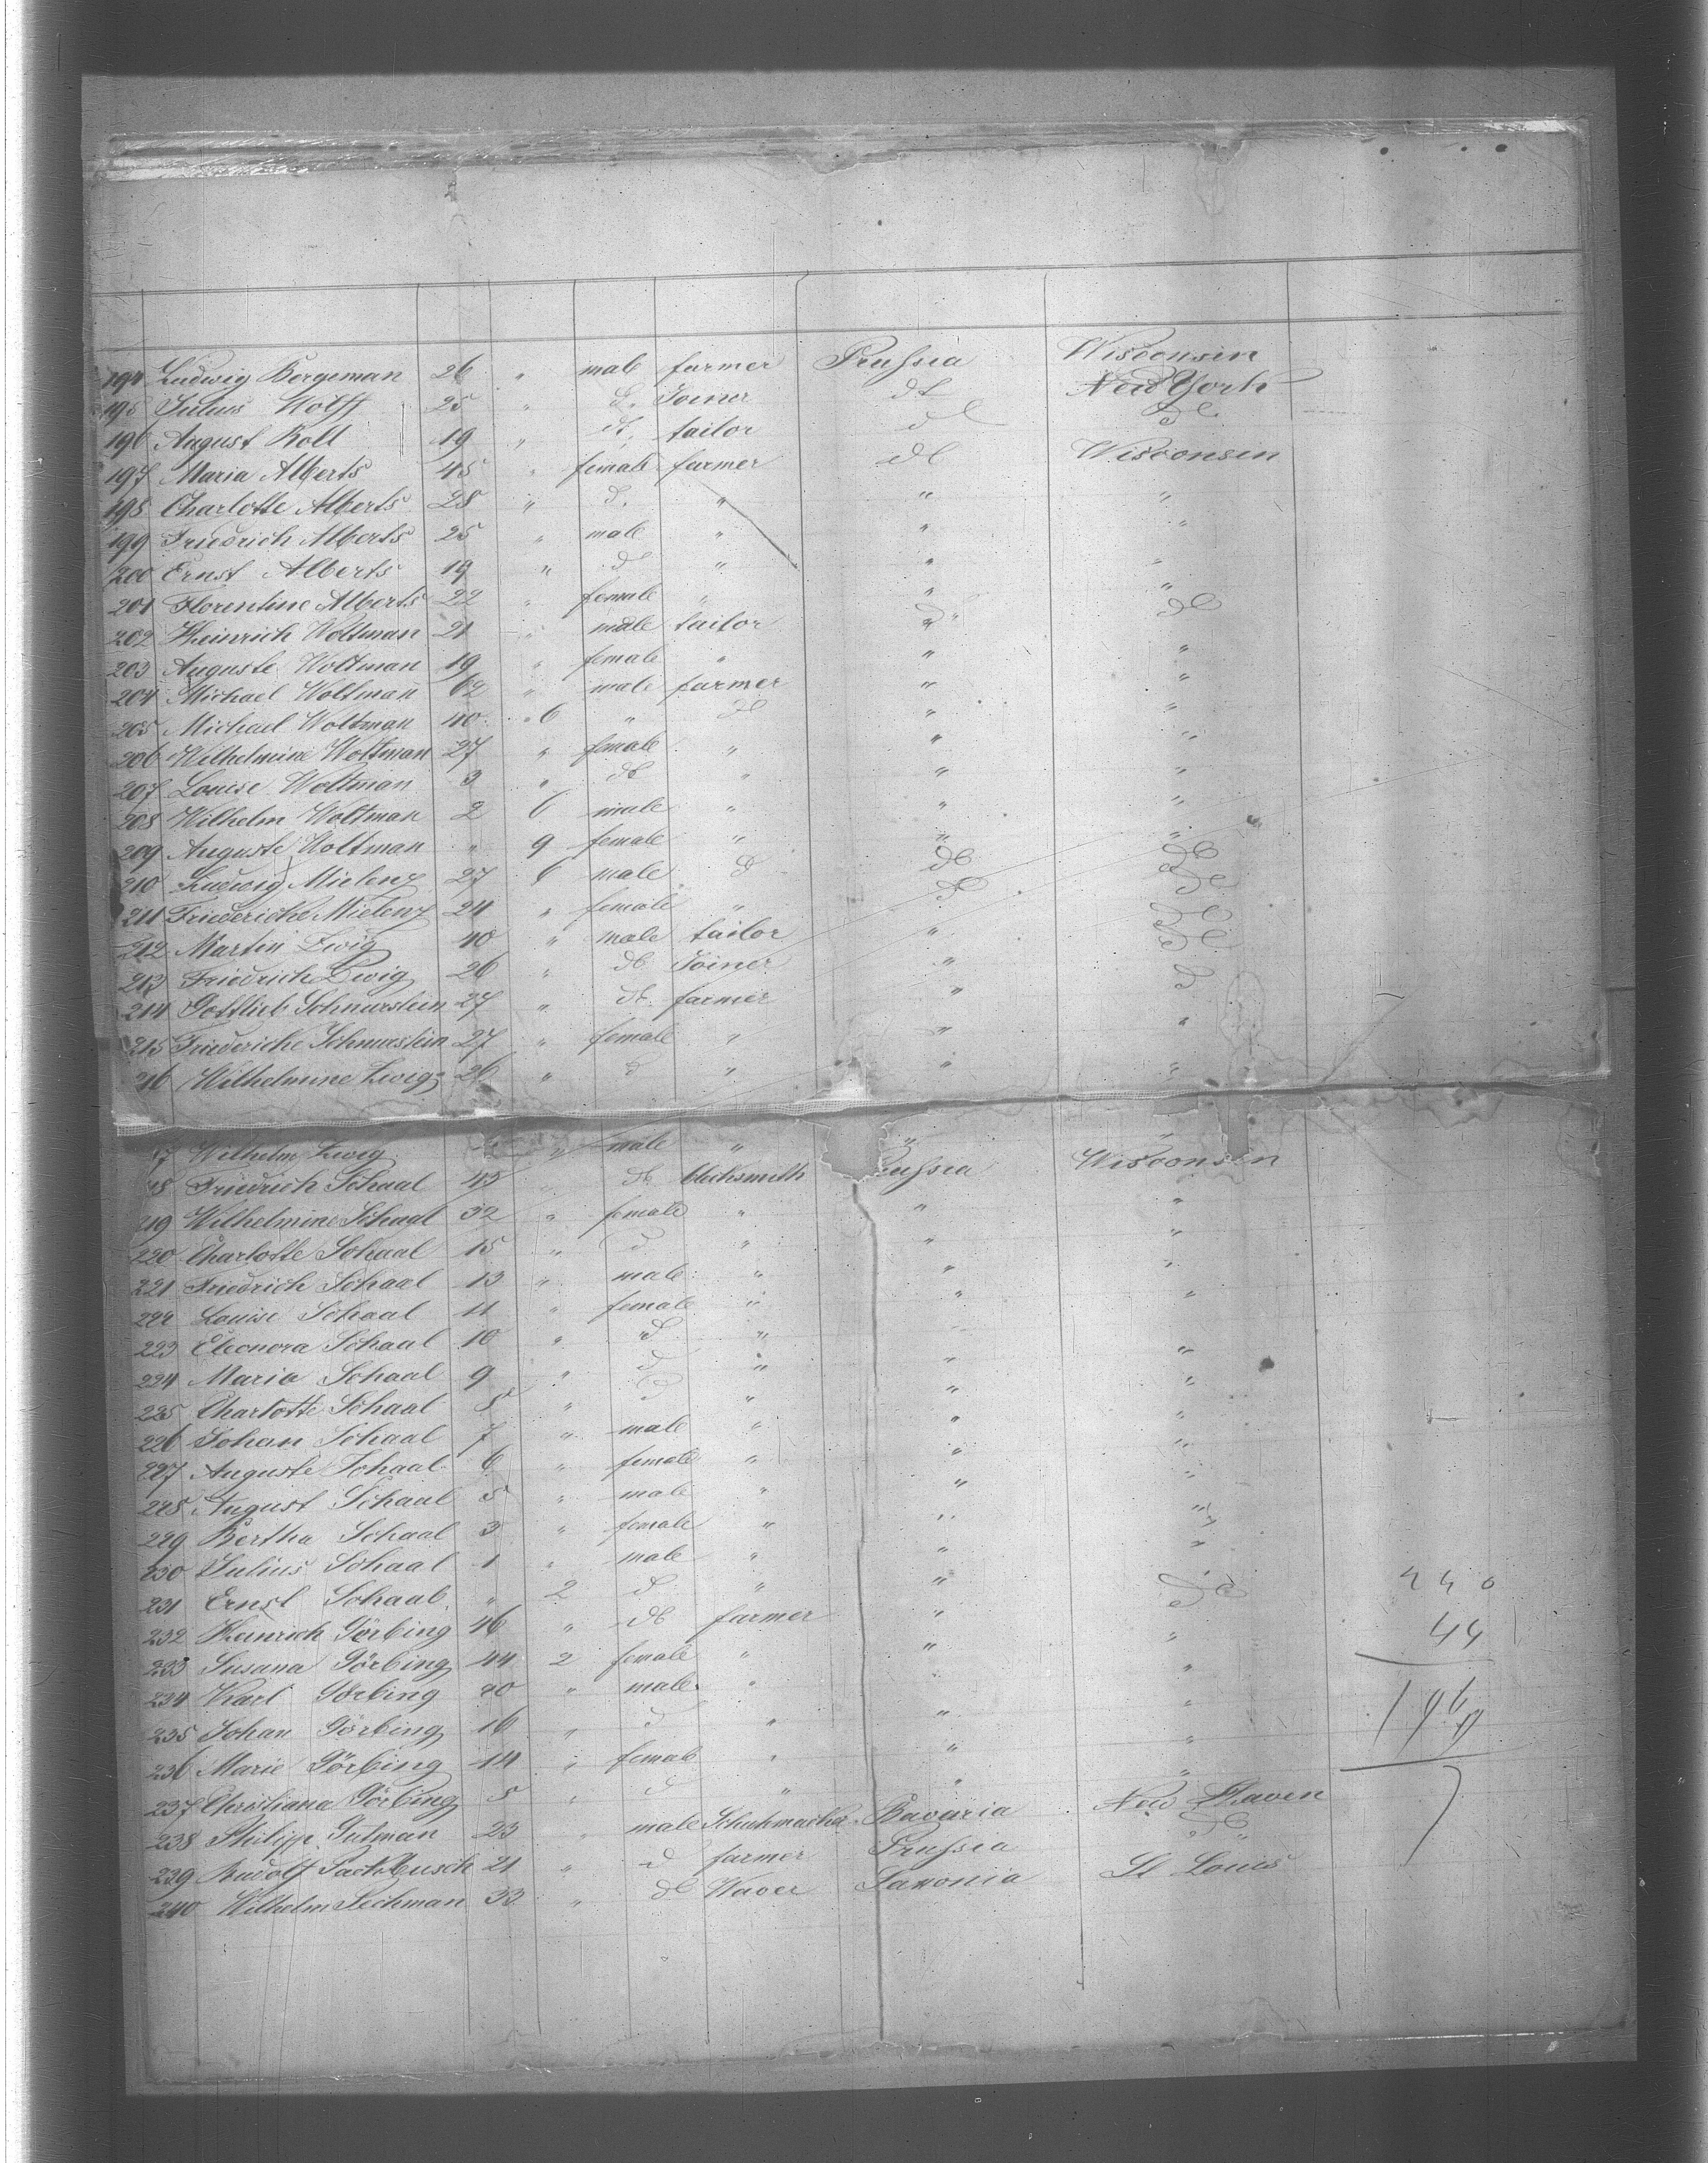 194 Ludwig Bergeman 26 " male farmer Prussia Wisconsin
195 Julius Wolff 25 " d. Joiner do New York
196 August Bolt 19 " do. tailor do do
197 Maria Alberts 45 " female farmer do Wisconsin
198 Charlotte Alberts 28 " d. " " "
199 Friedrich Alberts 25 " male " " "
200 Ernst Alberts 19 " d " " "
201 Florentine Alberts 22 " female " " "
202 Heinrich Woltman 21 " male tailor d" do
203 Auguste Woltman 19 " female " " "
204 Michael Woltman 62 " male farmer " "
205 Michael Woltman 40 " 6 " do " "
206 Wilhelmine Woltman 27 " female " " "
207 Louise Woltman 3 " do " " "
208 Wilhelm Woltman 2 6 male " " "
209 Auguste Woltman " 9 female " " "
210 Ludwig Mielenz 27 6 male d do do
211 Friedericke Mielenz 24 " female " do do
212 Martin Zwig 40 " male tailor " do
213 Friedrich Zwig 26 " do Joiner " do
214 Gottlieb Schnurstein 27 " do. farmer " d
215 Friedericke Schnurstein 27 " female " " "
216 Wilhelmine Zwig 26 " d " " "
17 Wilhelm Zwig " male " " "
18 Friedrich Schaal 45 " do blacksmith ussia Wisconsin
219 Wilhelmine Schaal 32 " female " " "
220 Charlotte Schaal 15 " d " " "
221 Friedrich Schaal 13 " male " " "
222 Louise Schaal 11 " female " " "
223 Eleonora Schaal 10 " d " " "
224 Maria Schaal 9 " d " " "
225 Charlotte Schaal 8 " d " " "
226 Johan Schaal 7 " male " " "
227 Auguste Schaal 6 " female " " "
228 August Schaal 5 " male " " "
229 Bertha Schaal 3 " female " " "
230 Julius Schaal 1 " male " " "
231 Ernst Schaal " 2 d " " "
232 Heinrich Görbing 46 " do farmer " do
233 Susana Görbing 44 2 female " " "
234 Karl Görbing 20 " male " " "
235 Johan Görbing 16 " d " " "
236 Marie Görbing 14 " female " " "
237 Christiana Görbing 5 " d " " "
238 Philipp Gutman 23 " male Schuhmacher Bavaria New Haven
239 Rudolf Packbusch 21 " d farmer Prussia do
240 Wilhelm Sechman 33 " do Waver Saxonia St Louis
240
44
196